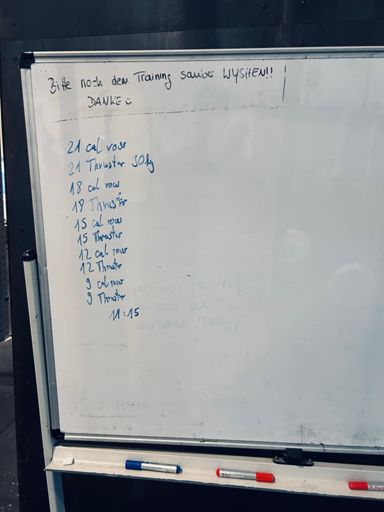 Bitte nach dem Training sauber WYSHEN!!
DANKE
21 cal row
21 Thruster 30kg
18 cal row
18 Thruster
15 cal row
15 Thruster
12 cal row
12 Thruster
9 cal row
9 Thruster
11:15